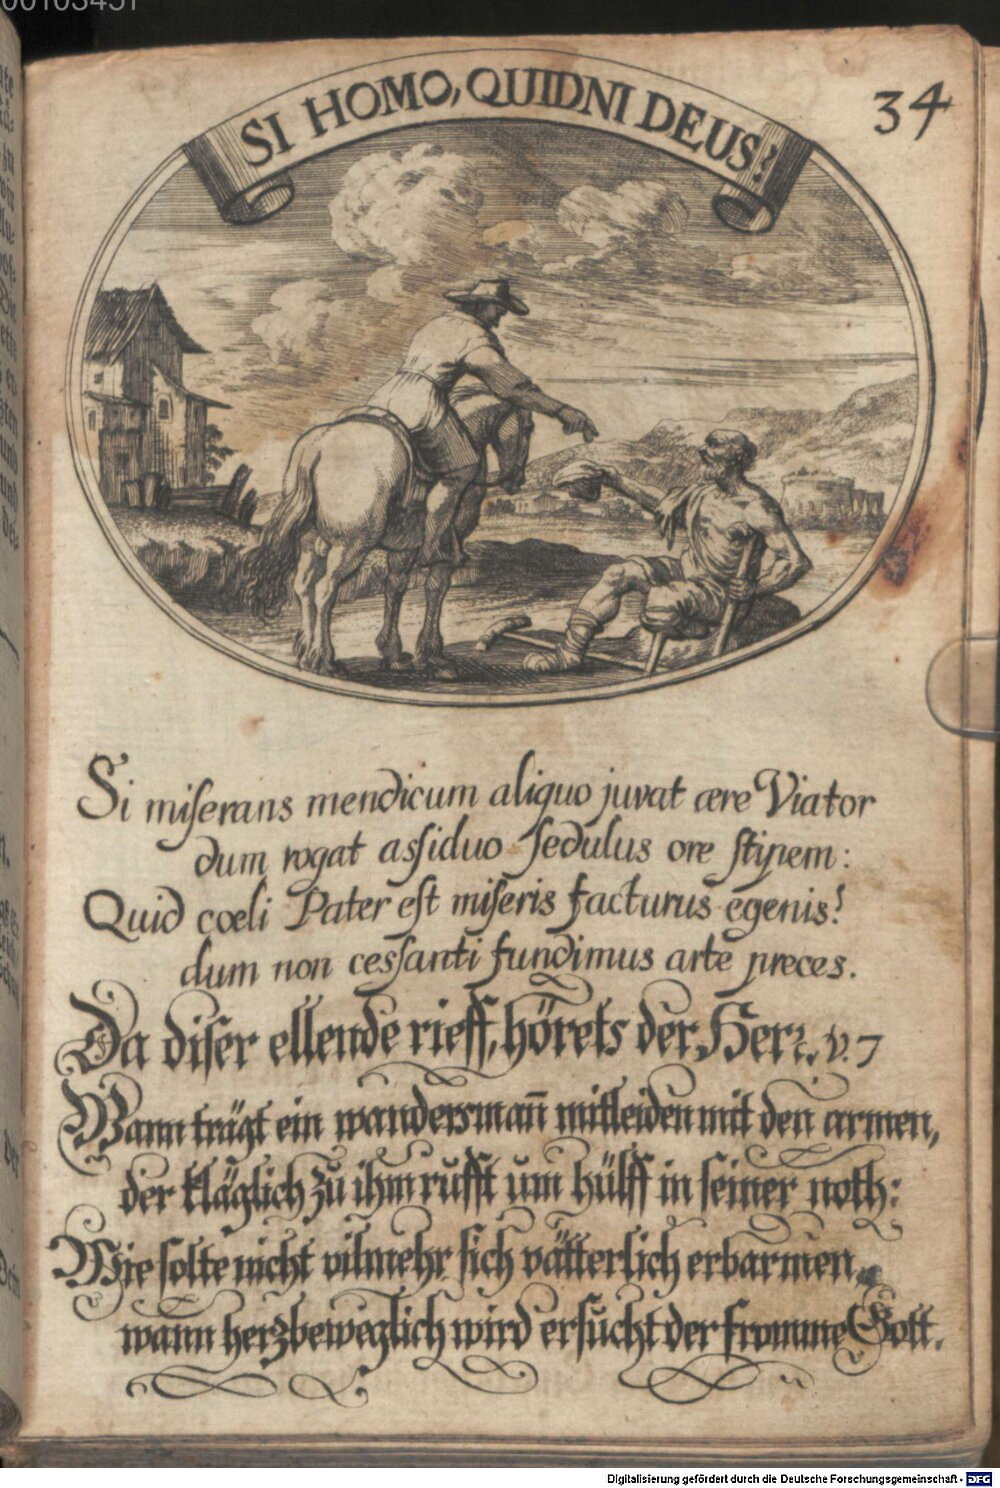 SI HOMO, QUIDNI DEUS?
34
Si miserans mendicum aliquo juvat ære Viator
dum rogat assiduo sedulus ore stipem:
Quid cœli Pater est miseris facturus egenis?
dum non cessanti fundimus arte preces.
Da diser ellende rieff, hörets der Herr. v. 7
Wann trägt ein wandersmañ mitleiden mit den armen,
der kläglich zu ihm rufft um hülff in seiner noth:
Wie solte nicht vilmehr sich vätterlich erbarmen,
wann herzbeweglich wird ersucht der fromme Gott.
Digitalisierung gefördert durch die Deutsche Forschungsgemeinschaft - DFG